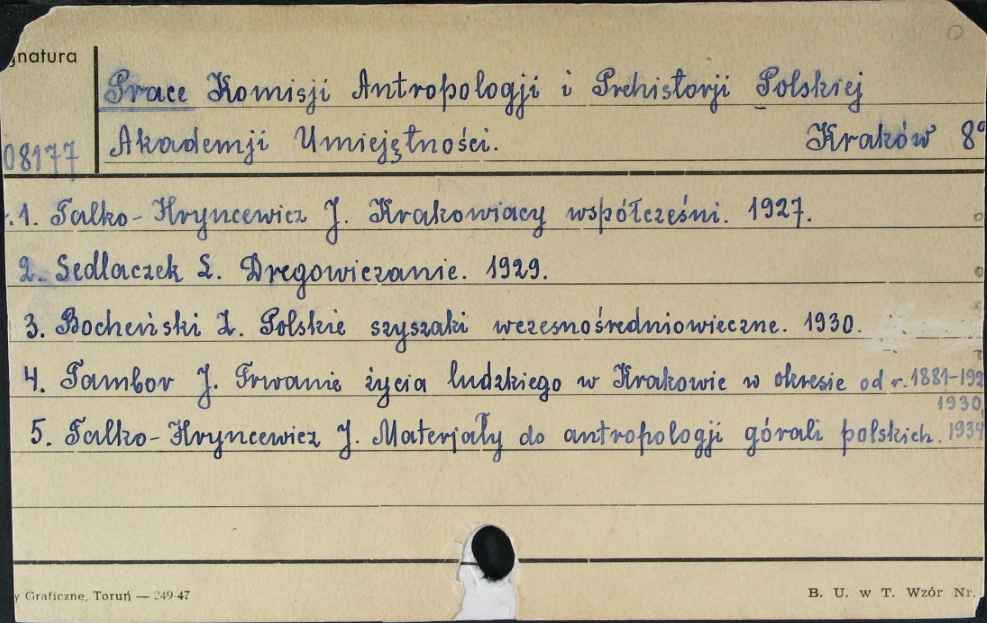 gnatura
Prace Komisji Antropologji i Prehistorji Polskiej
Akademji Umiejętności. Kraków 8°
08177
1. Talko-Hryncewicz J. Krakowiacy współcześni. 1927.
2. Sedlaczek L. Dregowiczanie. 1929.
3. Bocheński Z. Polskie szyszaki wczesnośredniowieczne. 1930.
4. Tambor J. Trwanie życia ludzkiego w Krakowie w okresie od r. 1881-192
1930,
5. Talko-Hryncewicz J. Materjały do antropologji górali polskich. 1934
y Graficzne, Toruń — 249-47
B. U. w T. Wzór Nr.